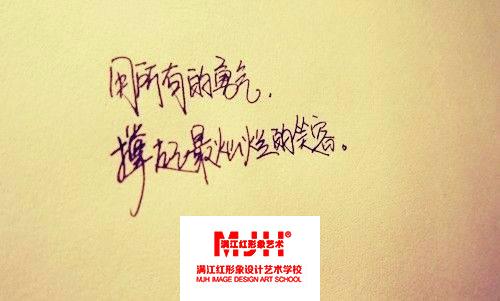 用所有的勇气，
撑起最灿烂的笑容。
MJH®
满江红形象艺术
满江红形象设计艺术学校
MJH IMAGE DESIGN ART SCHOOL